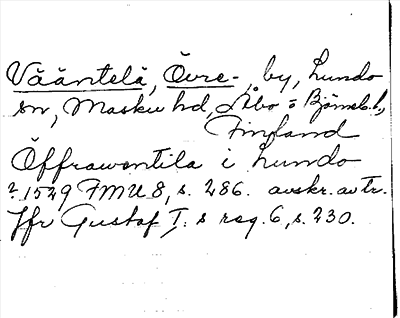 Vääntelä, Övre-, by, Lundo
sn, Masku hd, Åbo o Björneb. l.,
Finland
Öffrawentila i Lundo
? 1529 FMU 8, s. 286. avskr. av tr.
Jfr Gustaf I:s reg. 6, s. 230.